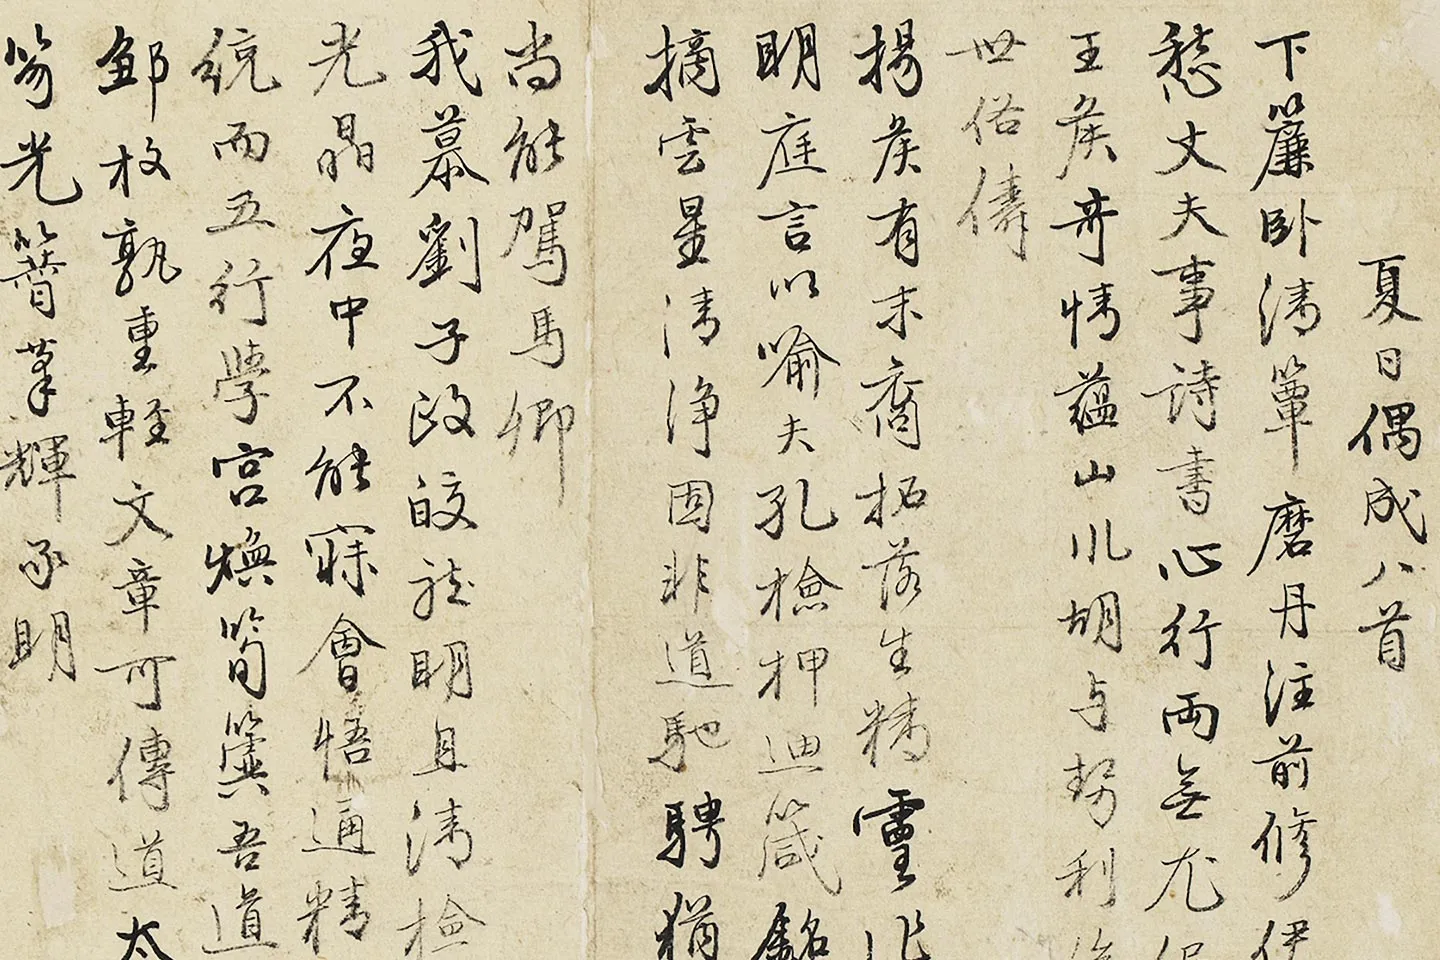 夏日偶成八首
下簾卧清簟磨丹注前脩伊
愁丈夫事詩書心行兩無尤
王侯奇情蘊山水胡与勢利
世俗儔
揚侯有末裔拓落生精靈
明庭言以喻夫孔檢押迪箴銘
摘雲星清淨固非道馳騁猶
尚能駕馬卿
我慕劉子政皎然明且清檢
光晶夜中不能寐會悟通精
統而五行學宮煥筍簴吾道
鄒枚孰重輕文章可傳道太
光篲筆輝承明